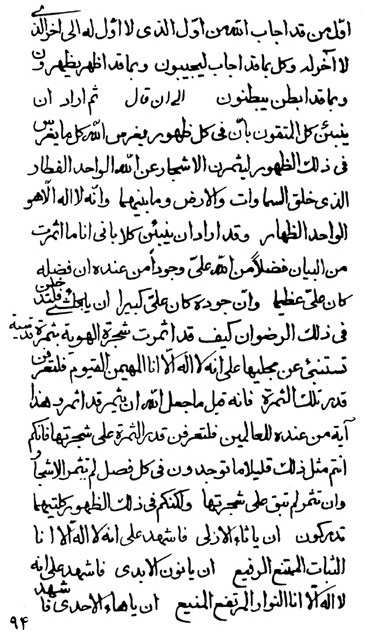 اوّل من قد اجاب الله من اوّل الذی لا اوّل له الی اخر الذ
لا آخر له وکل بما قد اجاب لیجیبون وبما قد اظهر یظهرون
وبما قد ابطن یبطنون الی ان قال ثم اراد ان
ینبئن کل المتقون بانّ فی کل ظهور یغرس الله کل ما یغرس
فی ذلک الظهور لیثمرن الاشجار عن الله الواحد الفطار
الذی خلق السموات والارض وما بینهما وانه لا اله الا هو
الواحد الظهار وقد اراد ان ینبئن کلا بانی انا ما اثمرت
من البیان فضلاً من الله علیّ وجوداً من عنده ان فضله
کان علیّ عظیما وانّ جوده کان علیّ کبیرا ان یا
فی ذلک الرضوان کیف قد اثمرت شجرة الهویة بثمرة
تستنبئ عن مجلیها علی انه لا اله الّا انا المهیمن القیوم فلتعرفن
قدر تلک الثمرة فانه قبل ما جعل الله ان یثمر قد اثمر وهذا
آیة من عنده للعالمین فلتعرفن قدر الثمرة علی شجرتها فانکم
انتم مثل ذلک قلیلا ما توجدون فی کل فصل لم تثمر الاشجار
وان تثمر لم تبق علی شجرتها ولکنکم فی ذلک الظهور کلتیهما
تدرکون ان یا ثاء الازلی فاشهد علی انه لا اله الّا انا
الثبات الممتنع الرفیع ان یا نون الابدی فاشهد علی انه
لا اله الّا انا النوار المرتفع المنیع ان یا هاء الاحدی فاشهد
۹۴